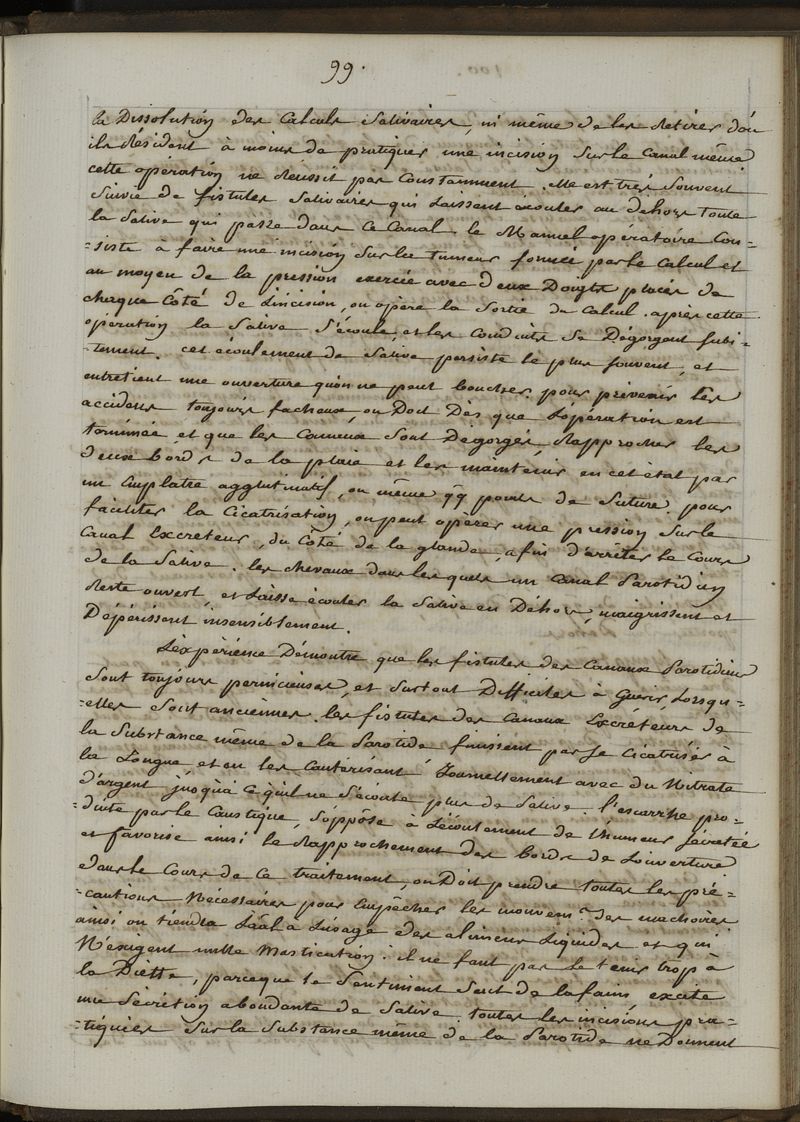 99.
la Dissolution des Calculs Salivaires, ni même de les Retirer d'où
ils Résident à moins de pratiquer une incision Sur le Canal même
cette opération ne Réussit pas Constamment. elle est très Souvent
Suivie de fistules Salivaires qui Laissent ecouler au dehors toute
la Salive qui passe dans ce Canal. le Manuel opératoire Con-
-siste à faire une incision Sur la tumeur formée par le Calcul et
au moyen de la pression exercée avec deux Doigts placés de
chaque Côté de L'incision, on opère la Sortie du Calcul. après cette
opération la Salive S'écoule, et les Conduits Se Dégorgent Subi-
-tement. cet écoulement de Salive persiste le plus Souvent, et
entretient une ouverture qu'on ne peut boucher. pour prévenir les
accidens toujours facheux, on Doit Dès que L'opération est
terminée et que les Canaux Sont Dégorgés, Rapprocher les
deux bords de la plaie et les maintenir en cet état par
un Emplatre agglutinatif, ou même qq points de Suture. pour
faciliter la Cicatrisation, on peut opérer une pression Sur le
Canal Excreteur, du Côté de la glande, afin d'arrêter le Cours
de la Salive. les chevaux dans lesquels un Canal Parotidien
Reste ouvert, et Laisse écouler la Salive en Déhors, maigrissent et
Dépérissent insensiblement.
L'expérience Démontre que les fistules des Canaux Parotidiens
Sont toujours pernicieuses, et Surtout Difficiles à Guérir, Lorsqu-
-elles Sont anciennes. les fistules des Canaux Excréteurs de
la Substance même de la Parotide finissent par Se Cicatriser à
la Longue et en les Cautérisant Journellement avec du Nitrate
d'argent jusqu'à ce qu'il ne S'écoule plus de Salive. l'escarrhe pro-
-duite par le Caustique, S'oppose à L'écoulement de l'humeur Sécrétée
et favorise ainsi le Rapprochement des bords de L'ouverture
dans le Cours de ce traitement, on Doit prendre toutes les pré-
-cautions Nécessaires pour Empêcher les mouvemns des machoires
ainsi on tiendra L'aãl à L'usage des alimens Liquides et qui
N'exigent nulle Mastication. il ne faut pas le tenir trop à
la Diette, parceque le Sentiment Seul de la faim, excite
une Sécrétion abondante de Salive. toutes les incisions pra-
-tiquées Sur la Substance même de la Parotide ne Donnent